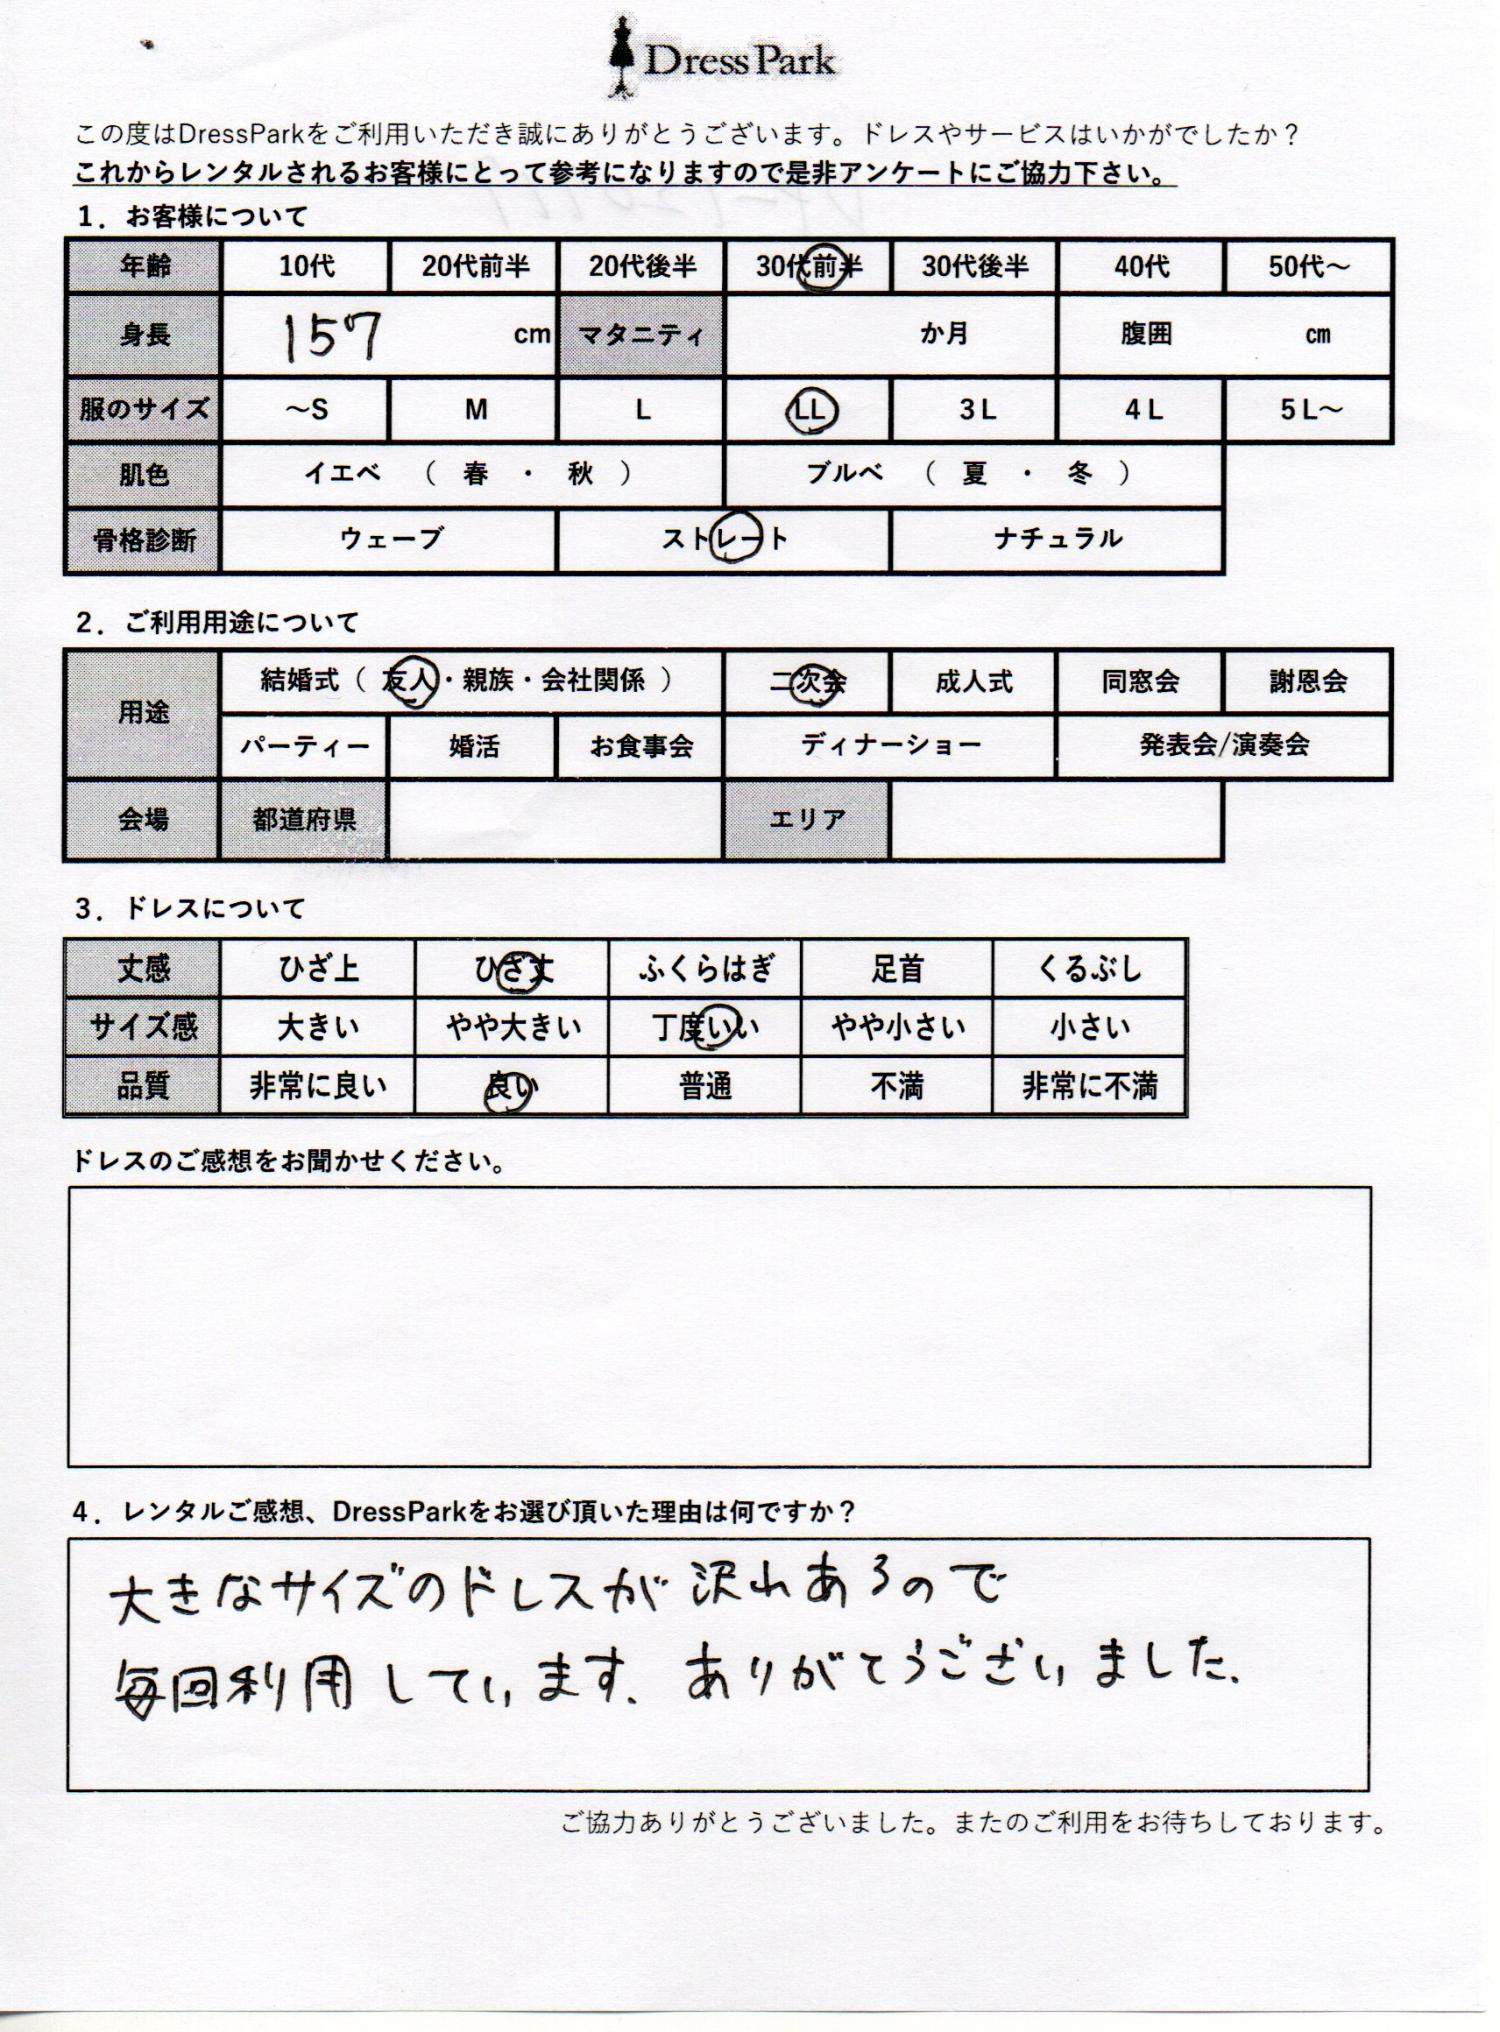 Dress Park
この度はDressParkをご利用いただき誠にありがとうございます。ドレスやサービスはいかがでしたか？
これからレンタルされるお客様にとって参考になりますので是非アンケートにご協力下さい。
1．お客様について
年齢 10代 20代前半 20代後半 30代前半 30代後半 40代 50代～
身長 157 cm マタニティ か月 腹囲 ㎝
服のサイズ ～S M L LL 3L 4L 5L～
肌色 イエベ （ 春 ・ 秋 ） ブルベ （ 夏 ・ 冬 ）
骨格診断 ウェーブ ストレート ナチュラル
2．ご利用用途について
用途 結婚式（ 友人・親族・会社関係 ） 二次会 成人式 同窓会 謝恩会
パーティー 婚活 お食事会 ディナーショー 発表会/演奏会
会場 都道府県 エリア
3．ドレスについて
丈感 ひざ上 ひざ丈 ふくらはぎ 足首 くるぶし
サイズ感 大きい やや大きい 丁度いい やや小さい 小さい
品質 非常に良い 良い 普通 不満 非常に不満
ドレスのご感想をお聞かせください。
4．レンタルご感想、DressParkをお選び頂いた理由は何ですか？
大きなサイズのドレスが沢山あるので
毎回利用しています. ありがとうございました.
ご協力ありがとうございました。またのご利用をお待ちしております。